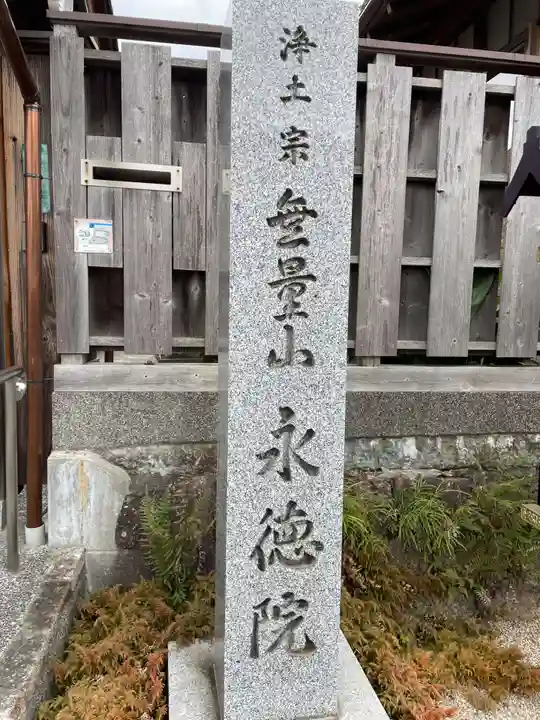 浄土宗無量山永徳院